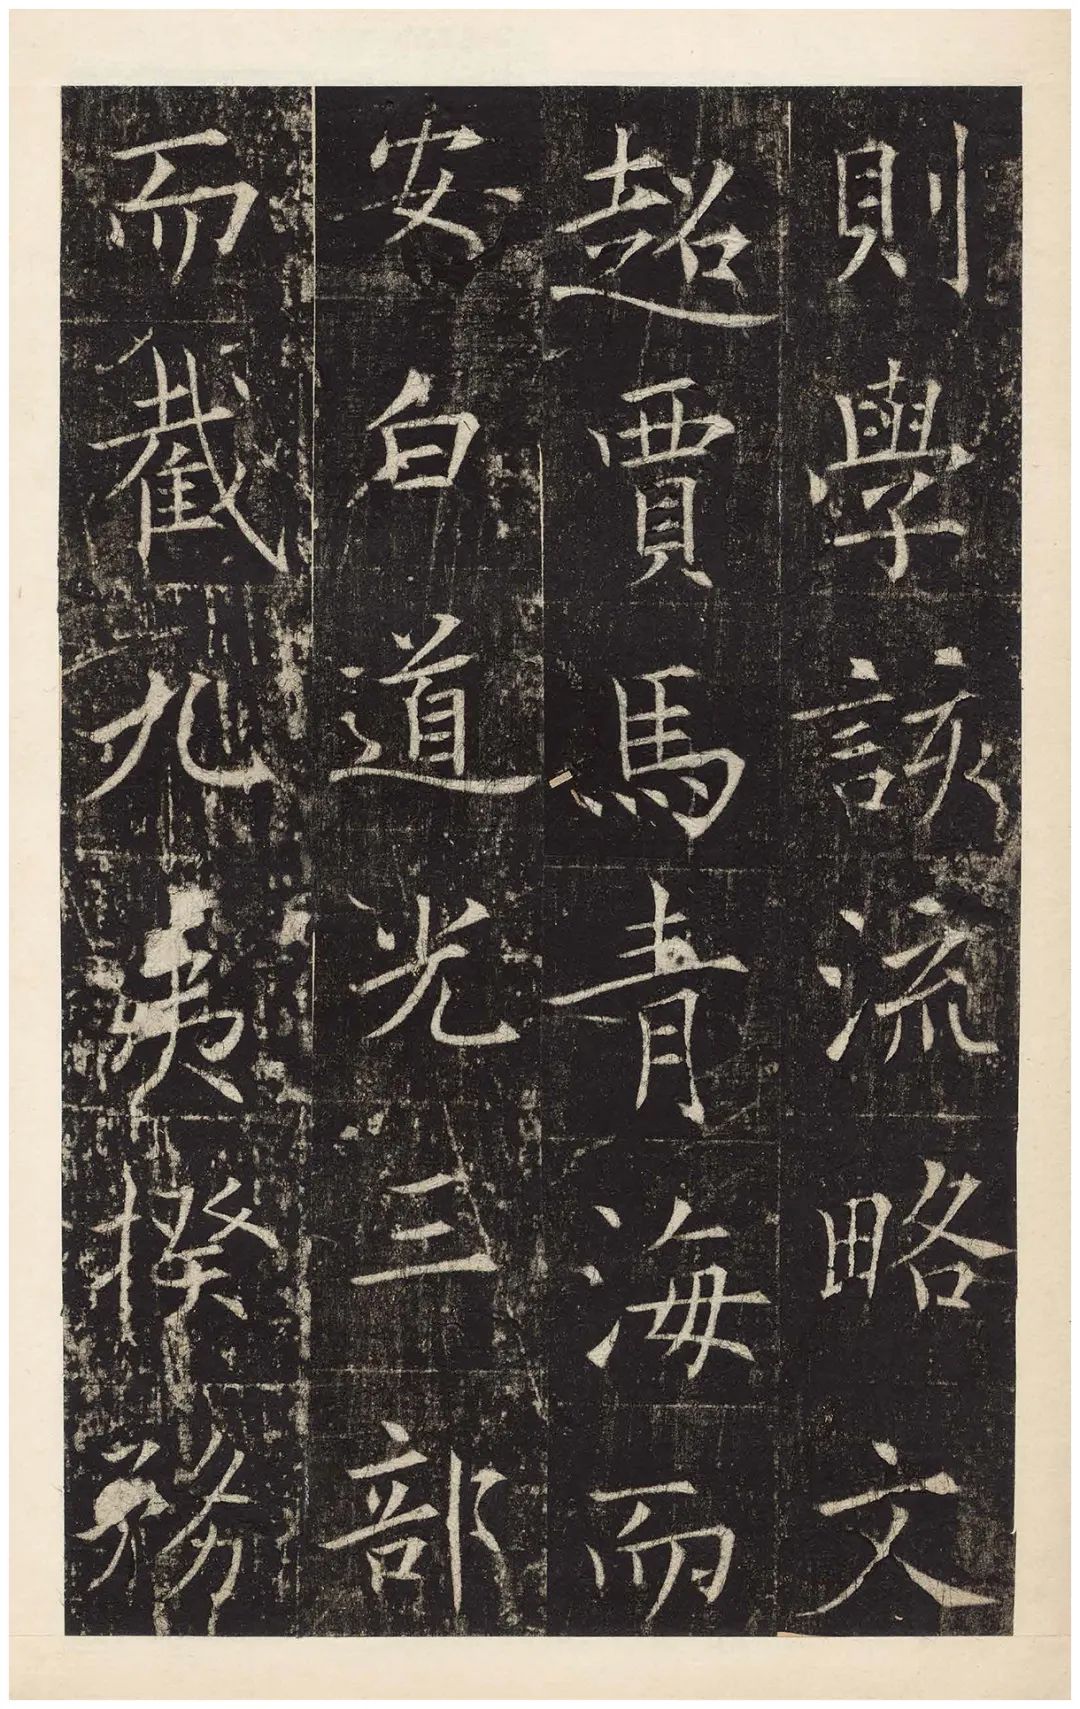 則學該流略文
超賈馬青海而
安白道光三部
而截九夷揆務